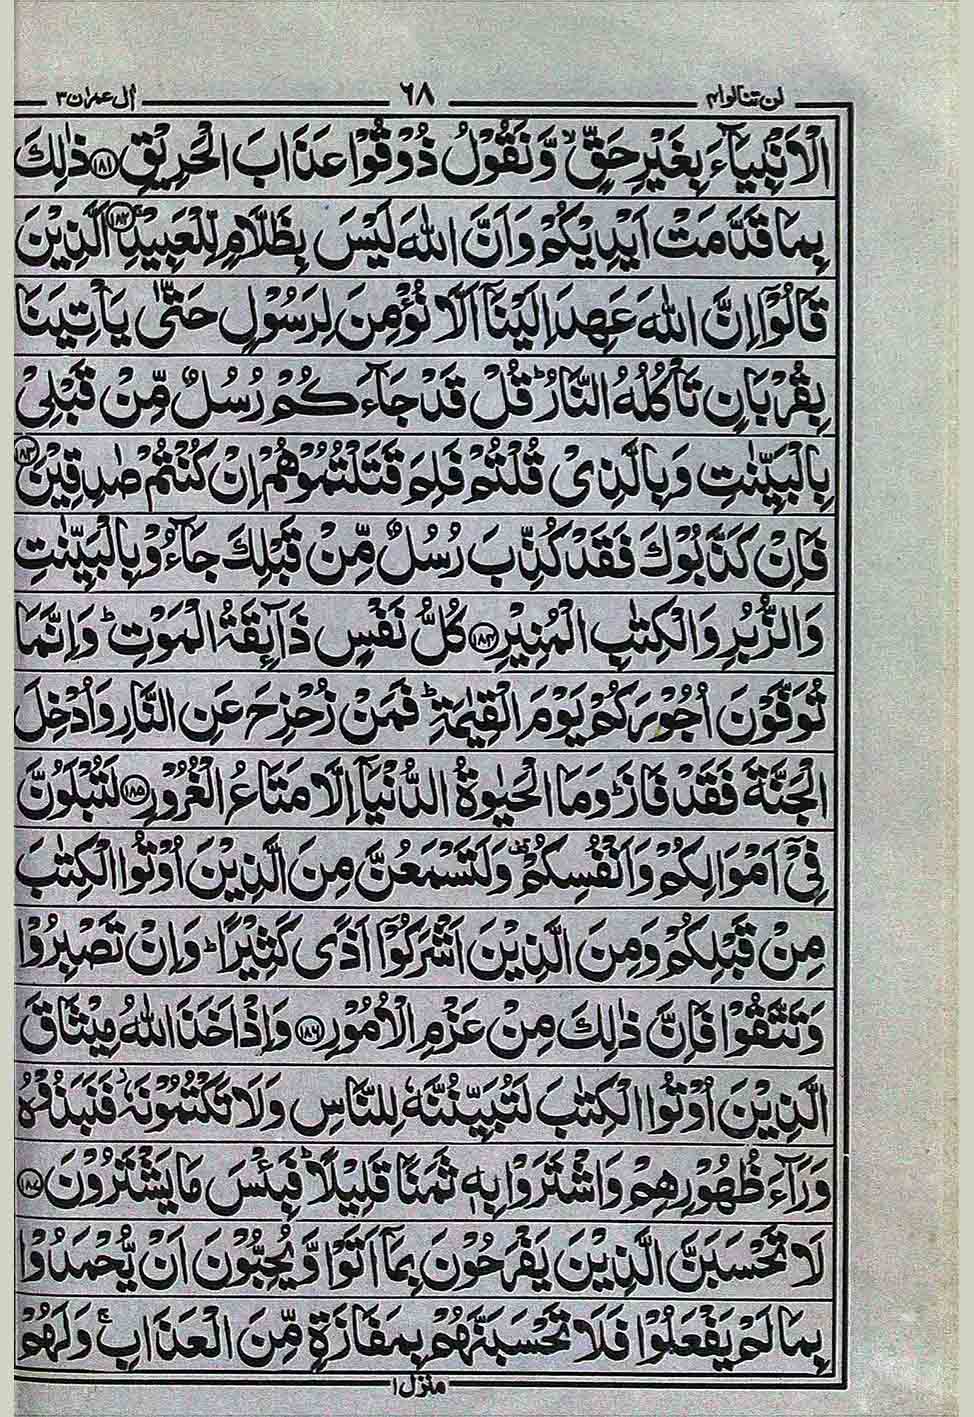 لن تنالوا ۴ ٦٨ اٰل عمران ۳
الْاَنْۢبِيَآءَ بِغَيْرِ حَقٍّ ۙ وَّ نَقُوْلُ ذُوْقُوْا عَذَابَ الْحَرِيْقِ ﴿۱۸۱﴾ ذٰلِكَ
بِمَا قَدَّمَتْ اَيْدِيْكُمْ وَ اَنَّ اللّٰهَ لَيْسَ بِظَلَّامٍ لِّلْعَبِيْدِ ۚ ﴿۱۸۲﴾ اَلَّذِيْنَ
قَالُوْۤا اِنَّ اللّٰهَ عَهِدَ اِلَيْنَاۤ اَلَّا نُؤْمِنَ لِرَسُوْلٍ حَتّٰى يَاْتِيَنَا
بِقُرْبَانٍ تَاْكُلُهُ النَّارُ ؕ قُلْ قَدْ جَآءَكُمْ رُسُلٌ مِّنْ قَبْلِيْ
بِالْبَيِّنٰتِ وَ بِالَّذِيْ قُلْتُمْ فَلِمَ قَتَلْتُمُوْهُمْ اِنْ كُنْتُمْ صٰدِقِيْنَ ﴿۱۸۳﴾
فَاِنْ كَذَّبُوْكَ فَقَدْ كُذِّبَ رُسُلٌ مِّنْ قَبْلِكَ جَآءُوْ بِالْبَيِّنٰتِ
وَ الزُّبُرِ وَ الْكِتٰبِ الْمُنِيْرِ ﴿۱۸۴﴾ كُلُّ نَفْسٍ ذَآئِقَةُ الْمَوْتِ ؕ وَ اِنَّمَا
تُوَفَّوْنَ اُجُوْرَكُمْ يَوْمَ الْقِيٰمَةِ ؕ فَمَنْ زُحْزِحَ عَنِ النَّارِ وَ اُدْخِلَ
الْجَنَّةَ فَقَدْ فَازَ ؕ وَ مَا الْحَيٰوةُ الدُّنْيَاۤ اِلَّا مَتَاعُ الْغُرُوْرِ ﴿۱۸۵﴾ لَتُبْلَوُنَّ
فِيْۤ اَمْوَالِكُمْ وَ اَنْفُسِكُمْ ۫ وَ لَتَسْمَعُنَّ مِنَ الَّذِيْنَ اُوْتُوا الْكِتٰبَ
مِنْ قَبْلِكُمْ وَ مِنَ الَّذِيْنَ اَشْرَكُوْۤا اَذًى كَثِيْرًا ؕ وَ اِنْ تَصْبِرُوْا
وَ تَتَّقُوْا فَاِنَّ ذٰلِكَ مِنْ عَزْمِ الْاُمُوْرِ ﴿۱۸۶﴾ وَ اِذْ اَخَذَ اللّٰهُ مِيْثَاقَ
الَّذِيْنَ اُوْتُوا الْكِتٰبَ لَتُبَيِّنُنَّهٗ لِلنَّاسِ وَ لَا تَكْتُمُوْنَهٗ ؗ فَنَبَذُوْهُ
وَرَآءَ ظُهُوْرِهِمْ وَ اشْتَرَوْا بِهٖ ثَمَنًا قَلِيْلًا ؕ فَبِئْسَ مَا يَشْتَرُوْنَ ﴿۱۸۷﴾
لَا تَحْسَبَنَّ الَّذِيْنَ يَفْرَحُوْنَ بِمَاۤ اَتَوْا وَّ يُحِبُّوْنَ اَنْ يُّحْمَدُوْا
بِمَا لَمْ يَفْعَلُوْا فَلَا تَحْسَبَنَّهُمْ بِمَفَازَةٍ مِّنَ الْعَذَابِ ۚ وَ لَهُمْ
منزل ۱